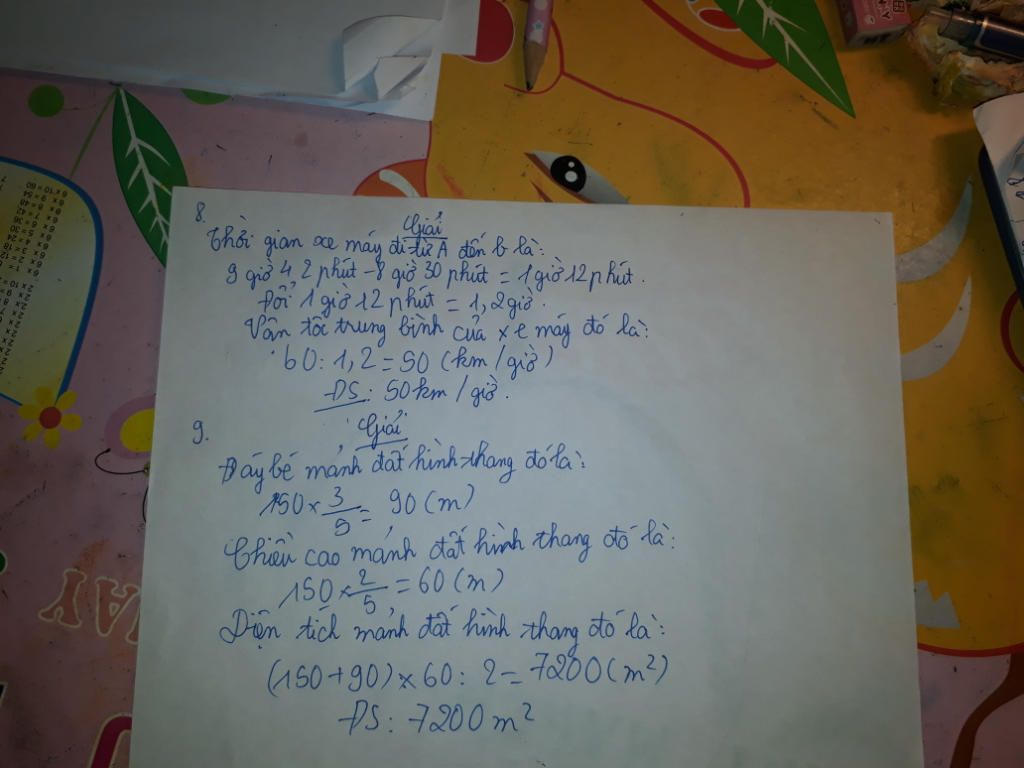 8.
Giải
Thời gian xe máy đi từ A đến b là:
9 giờ 42 phút - 8 giờ 30 phút = 1 giờ 12 phút.
Đổi 1 giờ 12 phút = 1,2 giờ.
Vận tốc trung bình của xe máy đó là:
60 : 1,2 = 50 (km/giờ)
ĐS: 50km/giờ.
9.
Giải
Đáy bé mảnh đất hình thang đó là:
150 × 3/5 = 90 (m)
Chiều cao mảnh đất hình thang đó là:
150 × 2/5 = 60 (m)
Diện tích mảnh đất hình thang đó là:
(150 + 90) × 60 : 2 = 7200 (m²)
ĐS: 7200 m²